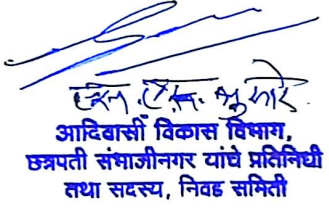 एस. एस. भुसारे.
आदिवासी विकास विभाग,
छत्रपती संभाजीनगर यांचे प्रतिनिधी
तथा सदस्य, निवड समिती